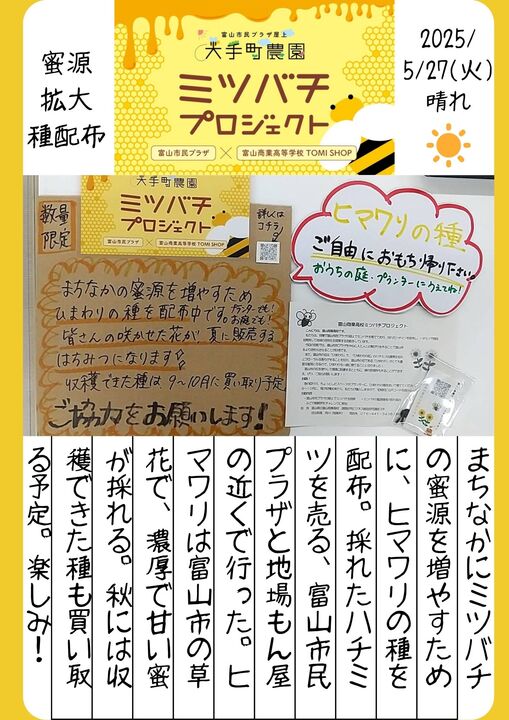 蜜源
拡大
種配布
富山市民プラザ屋上
大手町農園
ミツバチ
プロジェクト
富山市民プラザ × 富山商業高等学校 TOMI SHOP
2025/
5/27(火)
晴れ
数量
限定
大手町農園
ミツバチ
プロジェクト
富山市民プラザ × 富山商業高等学校 TOMI SHOP
詳しくは
コチラ
まちなかの蜜源を増やすため
ひまわりの種を配布中です。
プランターでも!
お庭でも!
皆さんの咲かせた花が 夏に販売する
はちみつになります
収穫できた種は 9~10月に買い取り予定
ご協力をお願いします!
ヒマワリの種
ご自由におもち帰り下さい
おうちの庭・プランターにうえてね!
富山商業高校ミツバチプロジェクト
まちなかにミツバチ
の蜜源を増やすため
に、ヒマワリの種を
配布。採れたハチミ
ツを売る、富山市民
プラザと地場もん屋
の近くで行った。ヒ
マワリは富山市の草
花で、濃厚で甘い蜜
が採れる。秋には収
穫できた種も買い取
る予定。楽しみ!